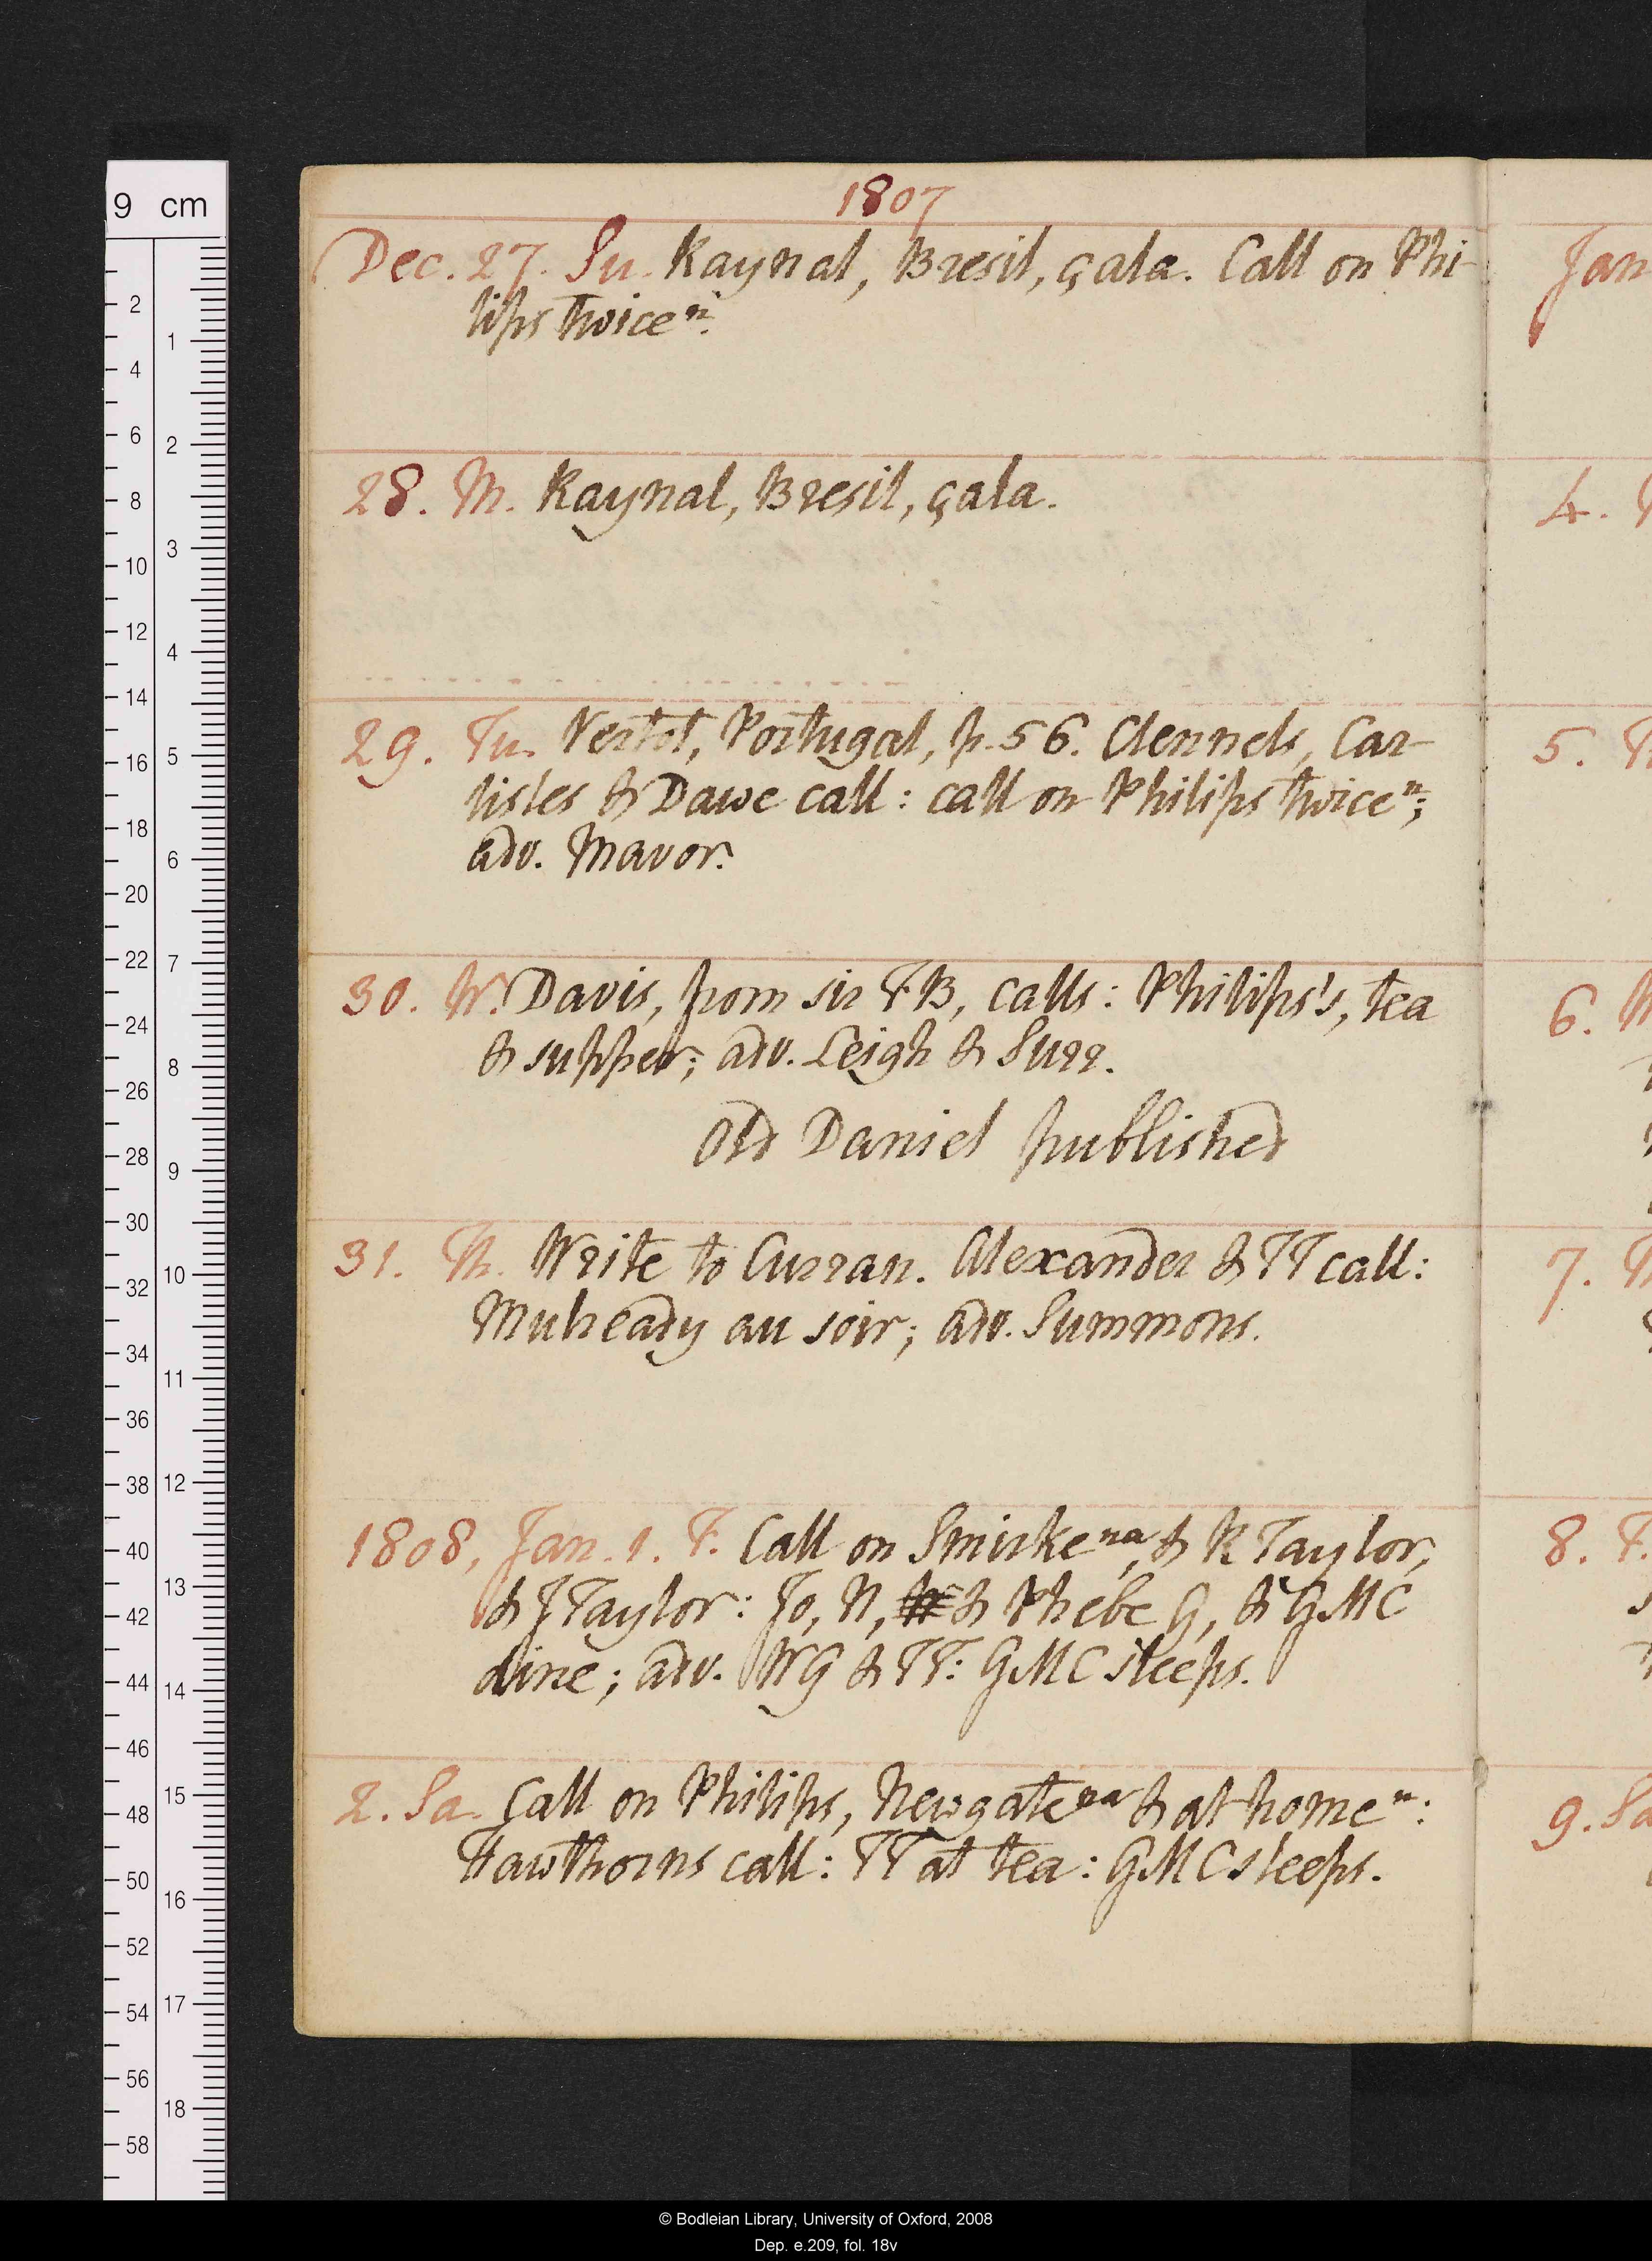 1807
Dec. 27. Su. Raynal, Bresil, çala. Call on Phi-
lips twice n.
28. M. Raynal, Bresil, çala.
29. Tu. Vertot, Portugal, p. 56. Clennels, Car-
lisles & Dawe call: call on Philips twice n;
adv. Mavor.
30. W. Davis, from sir FB, calls: Philips's, tea
& supper; adv. Leigh & Surr.
Old Daniel published
31. Th. Write to Curran. Alexander & TT call:
Mulready au soir; adv. Summons.
1808, Jan. 1. F. Call on Smirke na, & R Taylor,
& J Taylor: Jo, N, & Phebe G, & GMC
dine; adv. WG & TT: GMC sleeps.
2. Sa. Call on Philips, Newgate na & at home n:
Hawthorns call: TT at tea: GMC sleeps.
Jan
4.
5. T
6.
7.
8. F.
9. Sa
9 cm
2
4
6
8
10
12
14
16
18
20
22
24
26
28
30
32
34
36
38
40
42
44
46
48
50
52
54
56
58
1
2
3
4
5
6
7
8
9
10
11
12
13
14
15
16
17
18
© Bodleian Library, University of Oxford, 2008
Dep. e.209, fol. 18v